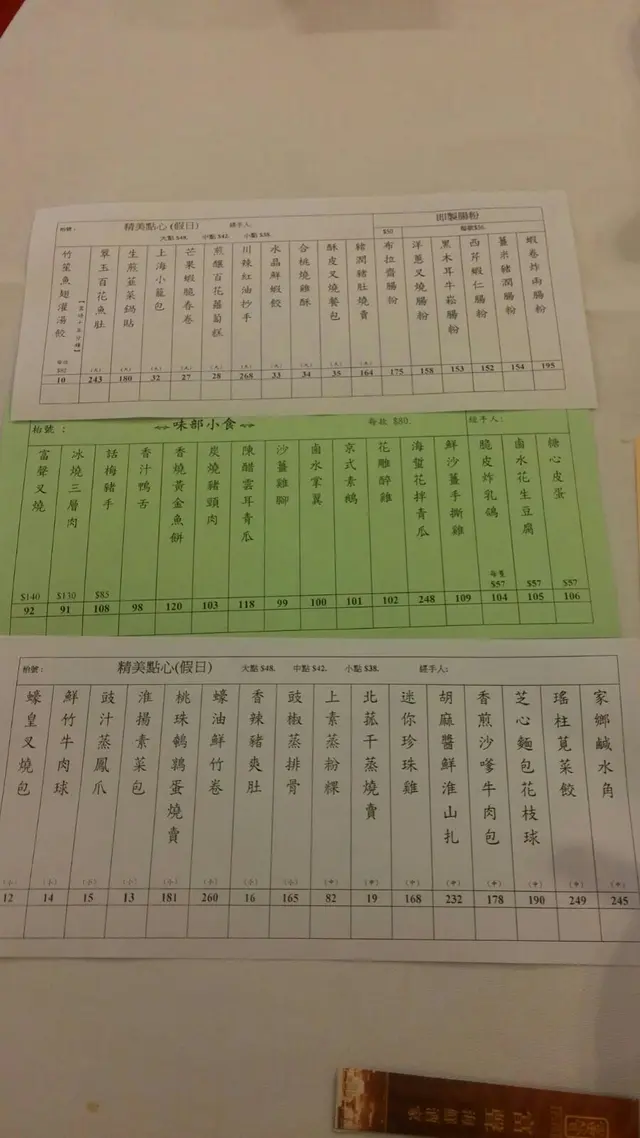 枱號：
精美點心(假日)
經手人:
大點 $48.
中點 $42.
小點 $38.
即製腸粉
$50
每款$56.
竹笙魚翅灌湯餃
翠玉百花魚肚
生煎韮菜鍋貼
上海小籠包
芒果蝦脆春卷
煎釀百花蘿蔔糕
川辣紅油抄手
水晶鮮蝦餃
合桃燒雞酥
酥皮叉燒餐包
豬潤豬肚燒賣
布拉齋腸粉
洋蔥叉燒腸粉
黑木耳牛崧腸粉
西芹蝦仁腸粉
薑米豬潤腸粉
蝦卷炸兩腸粉
每位
$52
(大) (大) (大) (大) (大) (大) (大) (大) (大) (大)
10 243 180 32 27 28 268 33 34 35 164 175 158 153 152 154 195
枱號：
味部小食
每款 $80.
經手人:
富聲叉燒
冰燒三層肉
話梅豬手
香汁鴨舌
香燒黃金魚餅
炭燒豬頸肉
陳醋雲耳青瓜
沙薑雞腳
鹵水掌翼
京式素鵝
花雕醉雞
海蜇花拌青瓜
鮮沙薑手撕雞
脆皮炸乳鴿
鹵水花生豆腐
糖心皮蛋
每隻
$140 $130 $85 $57 $57 $57
92 91 108 98 120 103 118 99 100 101 102 248 109 104 105 106
枱號：
精美點心(假日)
大點 $48.
中點 $42.
小點 $38.
經手人:
蠔皇叉燒包
鮮竹牛肉球
豉汁蒸鳳爪
淮揚素菜包
桃珠鵪鶉蛋燒賣
蠔油鮮竹卷
香辣豬爽肚
豉椒蒸排骨
上素蒸粉粿
北菰干蒸燒賣
迷你珍珠雞
胡麻醬鮮淮山扎
香煎沙嗲牛肉包
芝心麵包花枝球
瑤柱莧菜餃
家鄉鹹水角
(小) (小) (小) (小) (小) (小) (小) (小) (中) (中) (中) (中) (中) (中) (中) (中)
12 14 15 13 181 260 16 165 82 19 168 232 178 190 249 245